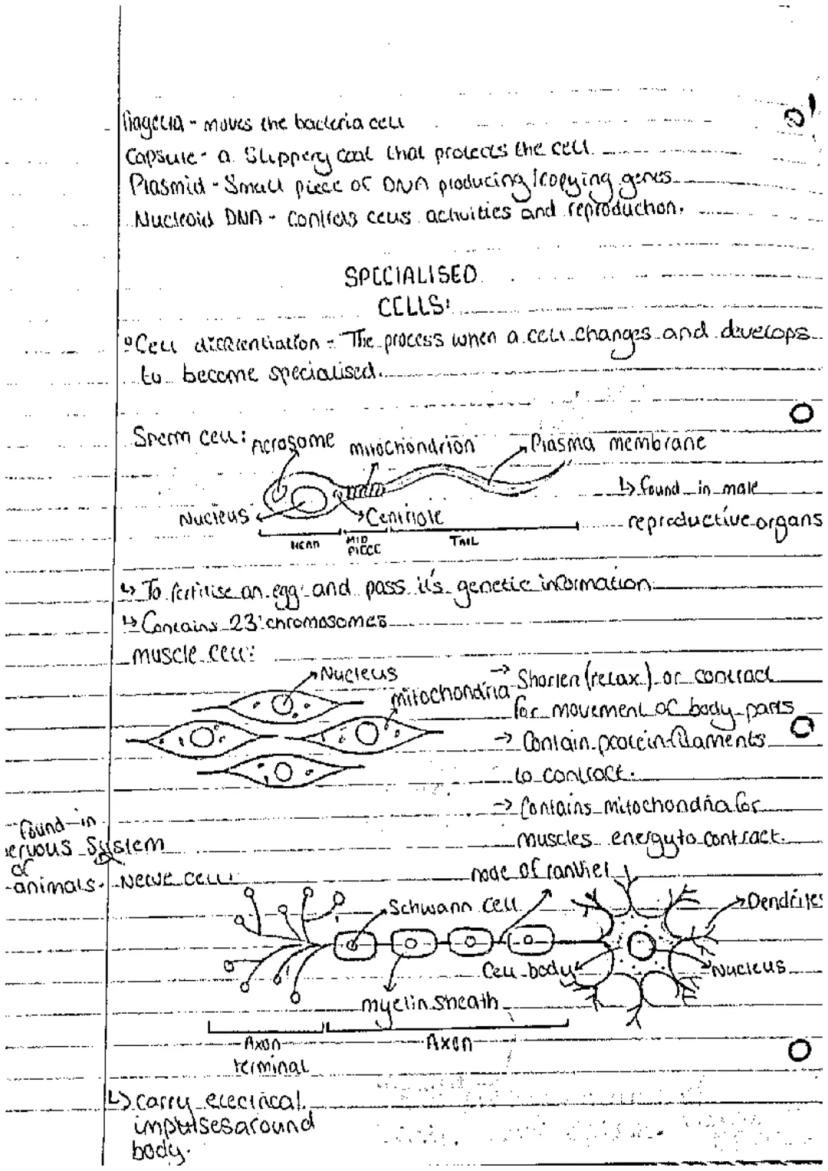 Flagella - moves the bacteria cell
Capsule - a slippery coat that protects the cell.
Plasmid - Small piece of DNA producing/copying genes
Nucleoid DNA - controls cells activities and reproduction.
SPECIALISED
CELLS:
Cell differentiation - The process when a cell changes and develops
to become specialised.
Sperm cell: Acrosome mitochondrion Plasma membrane
↳ found in male
Nucleus Centriole reproductive organs
HEAD MID PIECE TAIL
↳ To fertilise an egg and pass it's genetic information
↳ Contains 23 chromosomes
muscle cell:
Nucleus
mitochondria → Shorten (relax) or contract
for movement of body parts
→ Contain protein filaments
to contract.
→ Contains mitochondria for
muscles energy to contract.
found in
nervous system
of
animals. Nerve cell: node of ranvier
Schwann cell Dendrites
Cell body Nucleus
myelin sheath
Axon Axon
terminal
↳ carry electrical
impulses around
body.